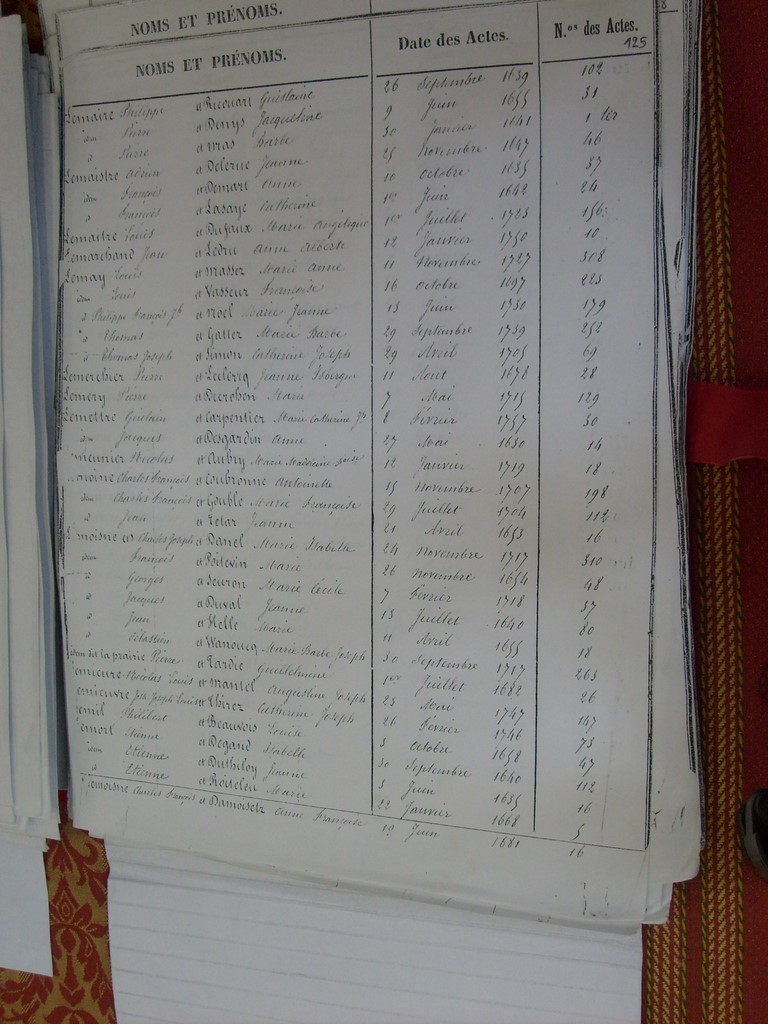 NOMS ET PRÉNOMS.
NOMS ET PRÉNOMS. Date des Actes. N.os des Actes.
125
Lemaire Philippe et Ricouart Guislaine 26 Septembre 1639 102
idem Pierre et Denys Jacqueline 9 Juin 1655 31
d° Pierre et Mras Barbe 30 Janvier 1641 1 ter
Lemaistre Adrien et Delerue Jeanne 25 Novembre 1647 46
idem François et Demare Anne 10 Octobre 1635 37
d° François et Lasaye Catherine 1er Juin 1642 24
Lemaitre Louis et Dufaux Marie Angélique 1er Juillet 1723 156
Lemarchand Jean et Ledru Anne Alberte 12 Janvier 1750 10
Lemay Louis et Massez Marie Anne 11 Novembre 1727 308
idem Louis et Vasseur Françoise 16 Octobre 1697 223
d° Philippe François Jh et Noel Marie Jeanne 13 Juin 1750 179
d° Thomas et Gattez Marie Barbe 29 Septembre 1739 252
d° Thomas Joseph et Simon Catherine Joseph 29 Avril 1705 69
Lemerchier Pierre et Leclercq Jeanne Isbergue 11 Aout 1676 28
Lemery Pierre et Dierchen Marie 7 Mai 1715 129
Lemettre Guislain et Carpentier Marie Catherine Jh 8 Février 1757 30
idem Jacques et Desgardin Anne 27 Mai 1650 14
Lemeunier Nicolas et Aubry Marie Madeleine Louise 12 Janvier 1719 18
Lemoine Charles François et Coubronne Antoinette 15 Novembre 1707 198
idem Charles François et Gouble Marie Françoise 29 Juillet 1704 112
d° Jean et Telar Jeanne 21 Avril 1653 16
Lemoisne Charles Joseph et Danel Marie Isabelle 24 Novembre 1717 310
idem François et Poitevin Marie 26 Novembre 1654 48
d° Georges et Seuron Marie Cécile 7 Février 1718 37
d° Jacques et Duval Jeanne 13 Juillet 1640 80
d° Jean et Helle Marie 11 Avril 1655 18
d° Sébastien et Wanoucq Marie Barbe Joseph 30 Septembre 1717 263
idem de la prairie Pierre et Tardie Guillelmine 1er Juillet 1682 26
Lemieure Nicolas Louis et Mantel Augustine Joseph 23 Mai 1747 147
Lemieuvre Jos. Joseph Louis et Thirez Catherine Joseph 26 Février 1746 73
Lemil Philibert et Beauvois Louise 3 Octobre 1658 47
Lemort Etienne et Degand Isabelle 30 Septembre 1640 112
idem Etienne et Duthilloy Jeanne 5 Juin 1635 16
d° Etienne et Roiteleu Marie 22 Janvier 1668 5
Lemoisne Charles François et Damoisetz Anne Françoise 19 Juin 1681 16